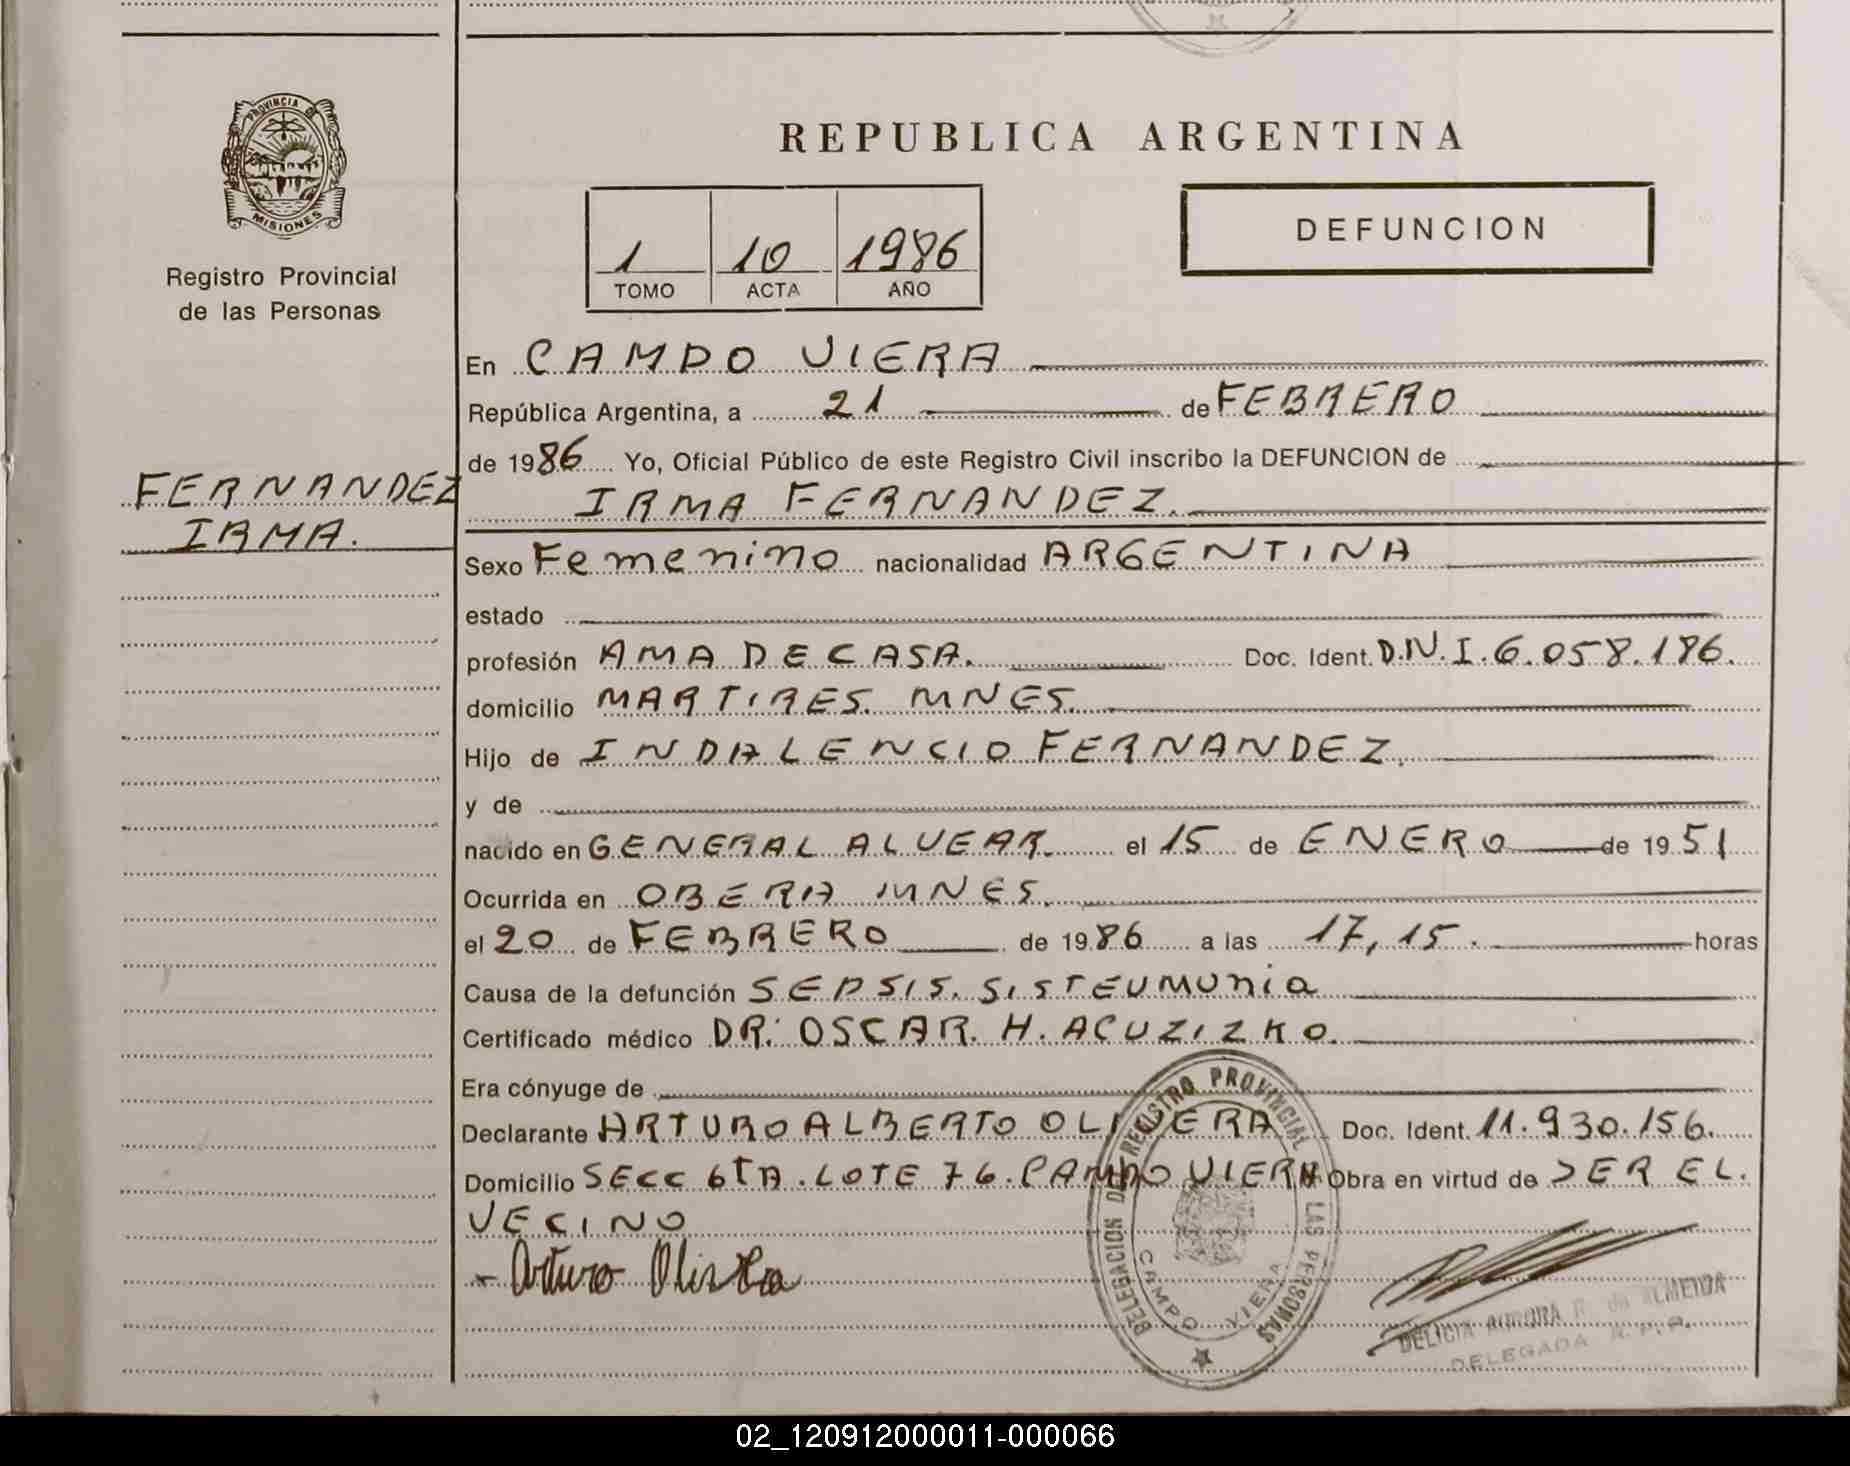 PROVINCIA DE
MISIONES
Registro Provincial
de las Personas
FERNANDEZ
IRMA.
REPUBLICA ARGENTINA
1 10 1986
TOMO ACTA AÑO
DEFUNCION
En CAMPO VIERA
República Argentina, a 21 de FEBRERO
de 1986 Yo, Oficial Público de este Registro Civil inscribo la DEFUNCION de
IRMA FERNANDEZ.
Sexo Femenino nacionalidad ARGENTINA
estado
profesión AMA DE CASA. Doc. Ident. D.N.I. 6.058.186.
domicilio MARTIRES. MNES.
Hijo de INDALENCIO FERNANDEZ.
y de
nacido en GENERAL ALVEAR. el 15 de ENERO de 1951
Ocurrida en OBERA MNES.
el 20 de FEBRERO de 1986 a las 17,15. horas
Causa de la defunción SEPSIS. SISTEUMONIA
Certificado médico DR: OSCAR. H. ACUZIZKO.
Era cónyuge de
Declarante ARTURO ALBERTO OLIVERA Doc. Ident. 11.930.156.
Domicilio SECC 6TA. LOTE 76. CAMPO VIERA Obra en virtud de SER EL.
VECINO
Arturo Olivera
DELEGACION DEL REGISTRO PROVINCIAL DE LAS PERSONAS
CAMPO VIERA
DELICIA AURORA R. de ALMEIDA
DELEGADA R.P.P.
02_120912000011-000066